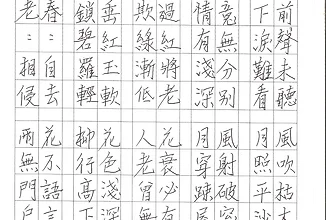 前聲未聽風吹枯
下淚難看月照平
竟無分别風射破
情有淺深月穿踈
過紅將老花衰必有
欺綠漸低人老曾無
垂紅玉軟花色淺深
鎖碧羅輕柳行高下
春::自去花不語言
老::相侵雨無門戶